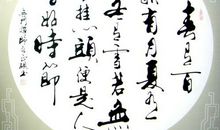 春有百
秋有月夏有
冬有雪若無
挂心頭便是人
間好時節